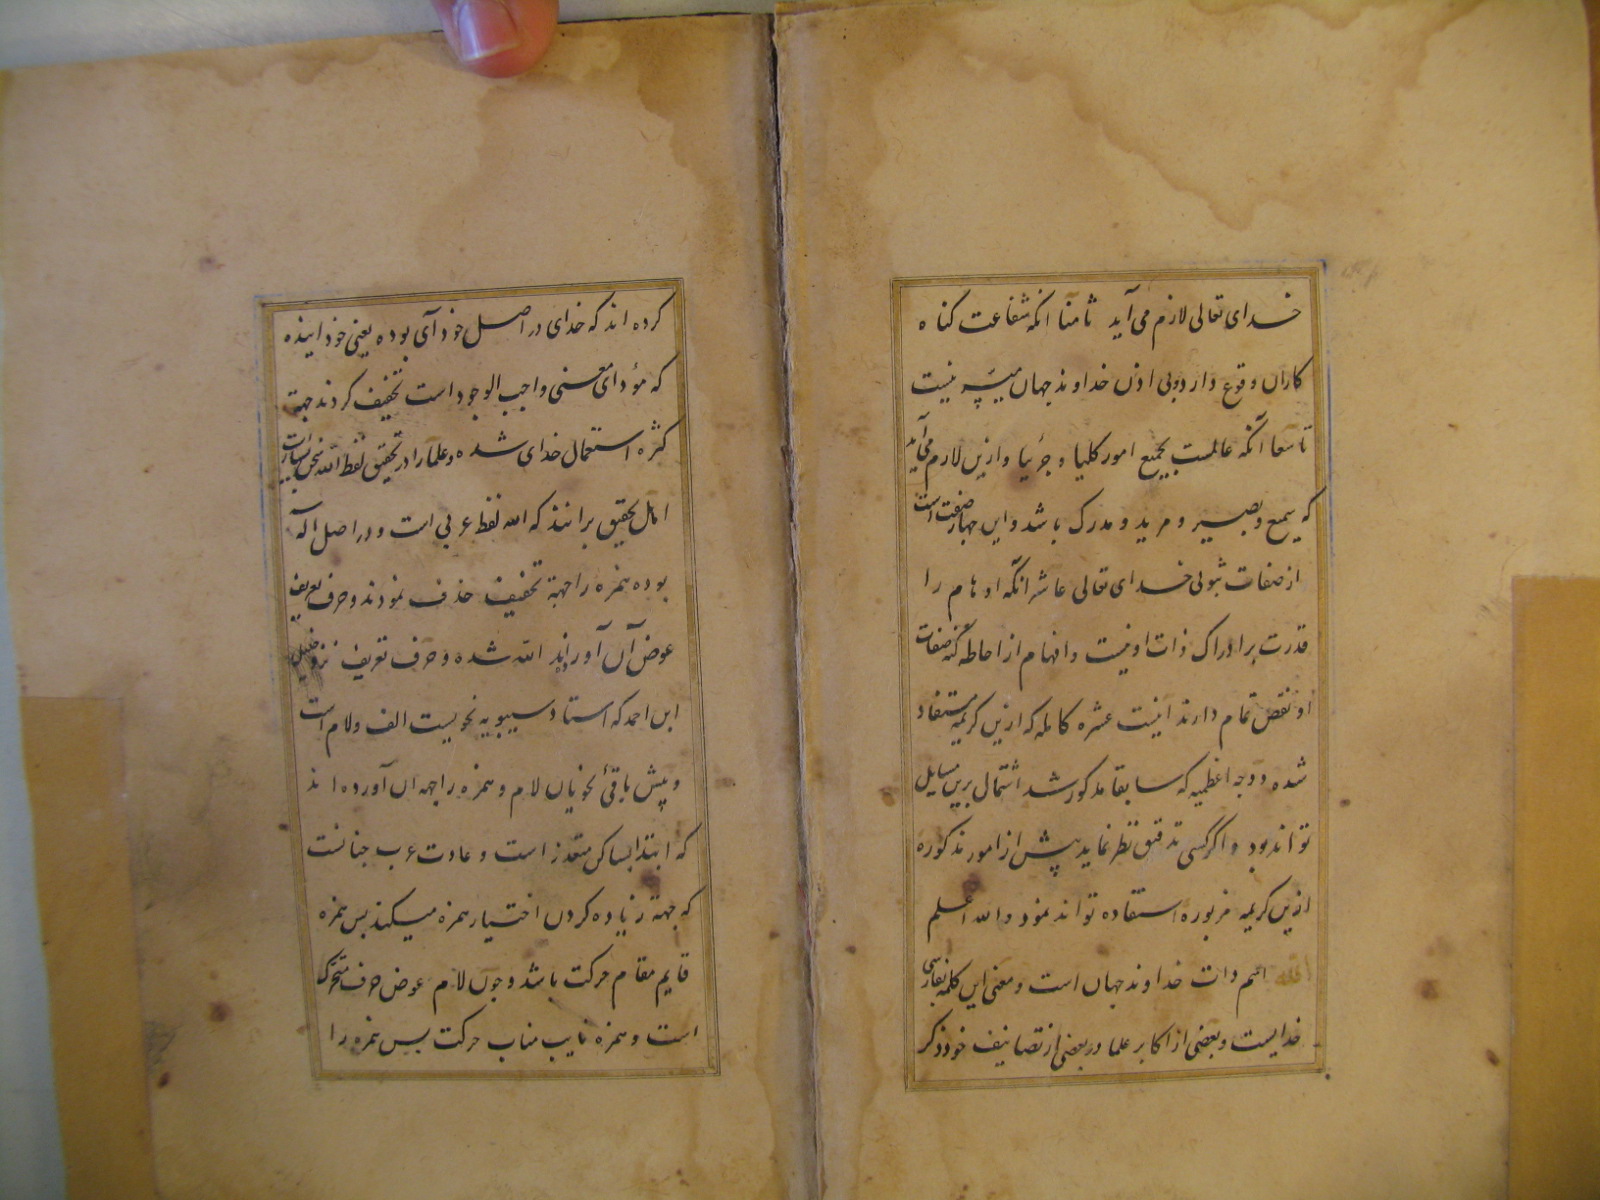 خدای تعالی لازم می آید ثامنا انکه شفاعت کناه
کاران وقوع دارد و بی اذن خداوند جهان میسر نیست
تاسعا آنکه عالمست بجمیع امور کلیا و جزئیا و ازین لازم می آید
که سمیع و بصیر و مرید و مدرک باشد و این چهار صفت است
از صفات ثبوتی خدای تعالی عاشرا آنکه اوهام را
قدرت بر ادراک ذات او نیست و افهام از احاطه کنه صفات
او نقص تمام دارند اینست عشره کامله که ازین کریمه مستفاد
شده و وجه اعظمیه که سابقا مذکور شد اشتمال برین مسایل
تواند بود و اگر کسی تدقیق نظر نماید پیش از امور مذکوره
ازین کریمه مزبوره استفاده تواند نمود والله اعلم
الله اسم ذات خداوند جهان است و معنی این کلمه بفارسی
خدایست و بعضی از اکابر علما در بعضی از تصانیف خود ذکر
کرده اند که خدای در اصل خود آی بوده یعنی خود اینده
که مؤدای معنی واجب الوجود است تخفیف کردند جهة
کثره استعمال خدای شده و علما را در تحقیق لفظ الله سخن بسیارست
اما اهل تحقیق برانند که الله لفظ عربی است و در اصل الٓه
بوده همزه را جهة تخفیف حذف نمودند و حرف تعریف
عوض آن آورده اند الله شده و حرف تعریف نزد خلیل
ابن احمد که استاد سیبویه نحویست الف و لام است
و پیش باقئ نحویان لام و همزه را جهة آن آورده اند
که ابتدا بساکن متعذر است و عادت عرب چنانست
که جهة زیاده کردن اختیار همزه میکنند پس همزه
قایم مقام حرکت باشد و چون لام عوض حرف متحرک
است و همزه نایب مناب حرکت پس همزه را